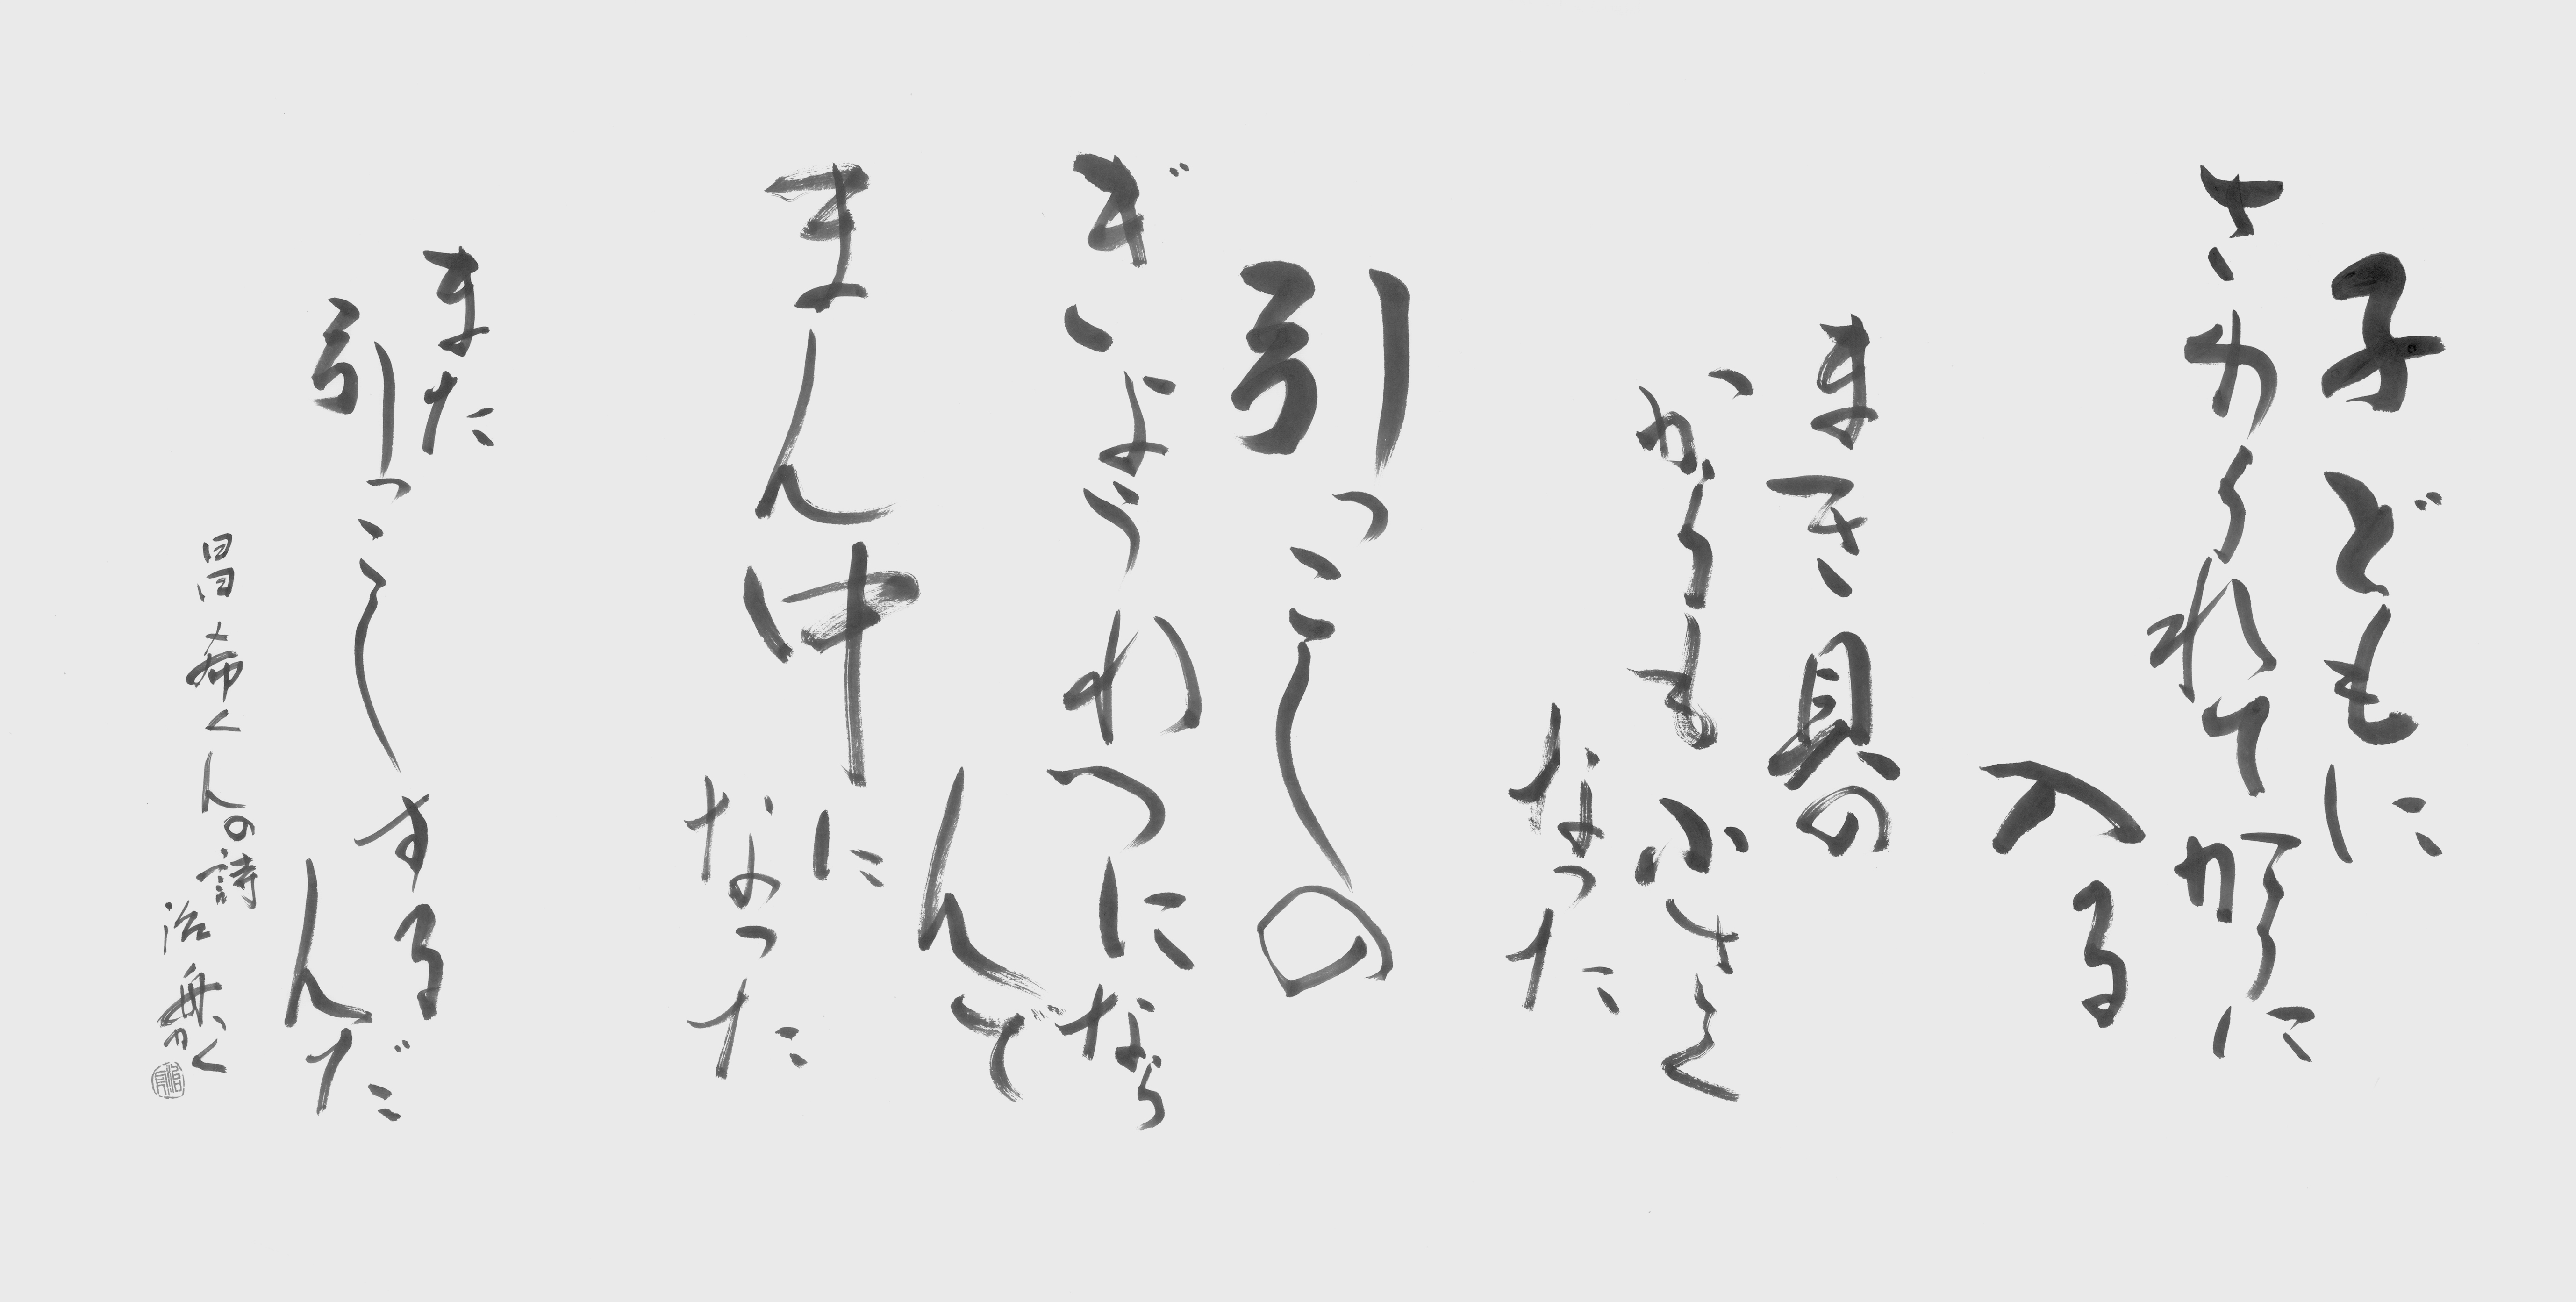 子どもに
さわられてからに
入る
まき貝の
からも小さく
なった
引っこしの
ぎょうれつになら
んで
まん中に
なった
また
引っこしする
んだ
昌希くんの詩
治無かく